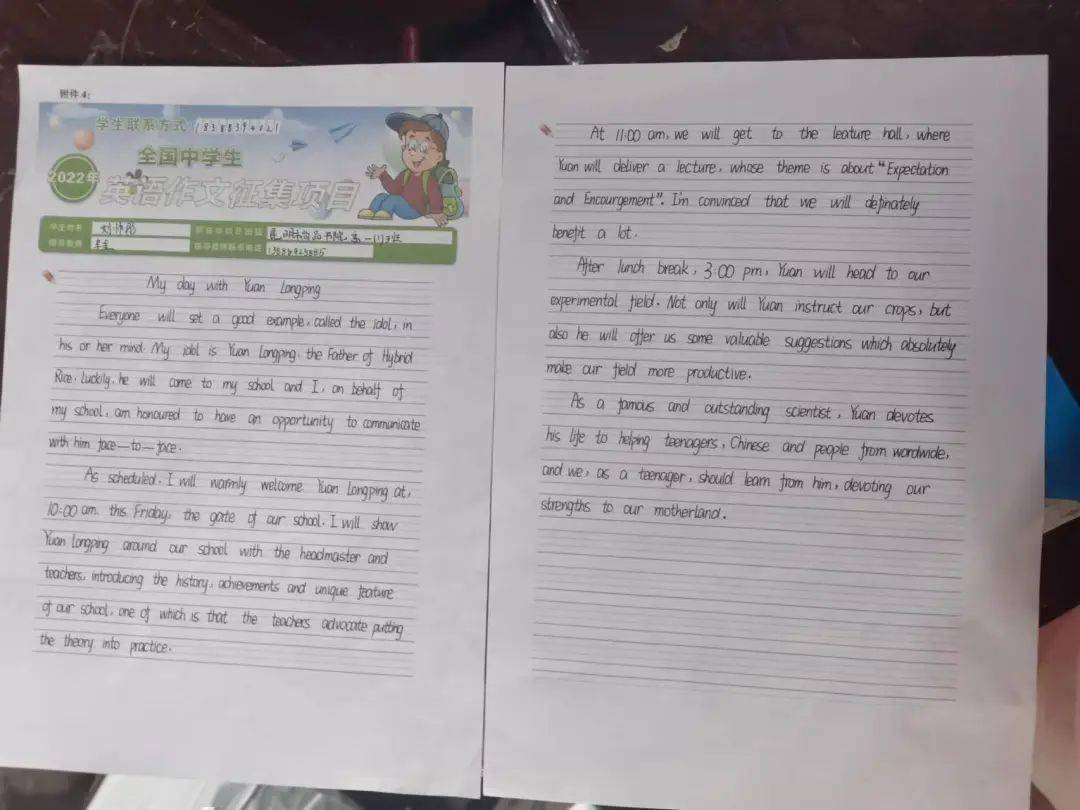 附件4:
学生联系方式
全国中学生
2022年
英语作文征集项目
学生姓名
指导教师
My day with Yuan Longping
Everyone will set a good example, called the idol, in
his or her mind. My idol is Yuan Longping, the Father of Hybrid
Rice. Luckily, he will come to my school and I, on behalf of
my school, am honoured to have an opportunity to communicate
with him face—to—face.
As scheduled, I will warmly welcome Yuan Longping at,
10:00 am. this Friday, the gate of our school. I will show
Yuan Longping around our school with the headmaster and
teachers, introducing the history, achievements and unique feature
of our school, one of which is that the teachers advocate putting
the theory into practice.
At 11:00 am, we will get to the leature hall, where
Yuan will deliver a lecture, whose theme is about "Expectation
and Encourgement". I'm convinced that we will definately
benefit a lot.
After lunch break, 3:00 pm, Yuan will head to our
experimental field. Not only will Yuan instruct our crops, but
also he will offer us some valuable suggestions which absolutely
make our field more productive.
As a famous and outstanding scientist, Yuan devotes
his life to helping teenagers, Chinese and people from wordwide,
and we, as a teenager, should learn from him, devoting our
strengths to our motherland.